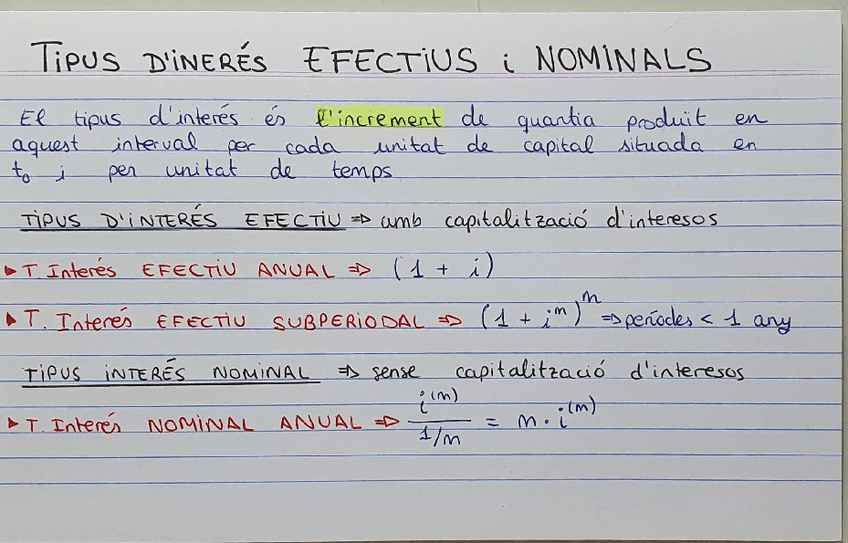 TIPUS D'INERÉS EFECTIUS i NOMINALS
El tipus d'interés és l'increment de quantia produït en
aquest interval per cada unitat de capital situada en
t₀ i per unitat de temps
TIPUS D'INTERÉS EFECTIU ⇒ amb capitalització d'interesos
▸ T. Interés EFECTIU ANUAL ⇒ (1 + i)
▸ T. Interés EFECTIU SUBPERIODAL ⇒ (1 + i^m)^m ⇒ períodes < 1 any
TIPUS INTERÉS NOMINAL ⇒ sense capitalització d'interesos
▸ T. Interés NOMINAL ANUAL ⇒ i^(m) / 1/m = m · i^(m)